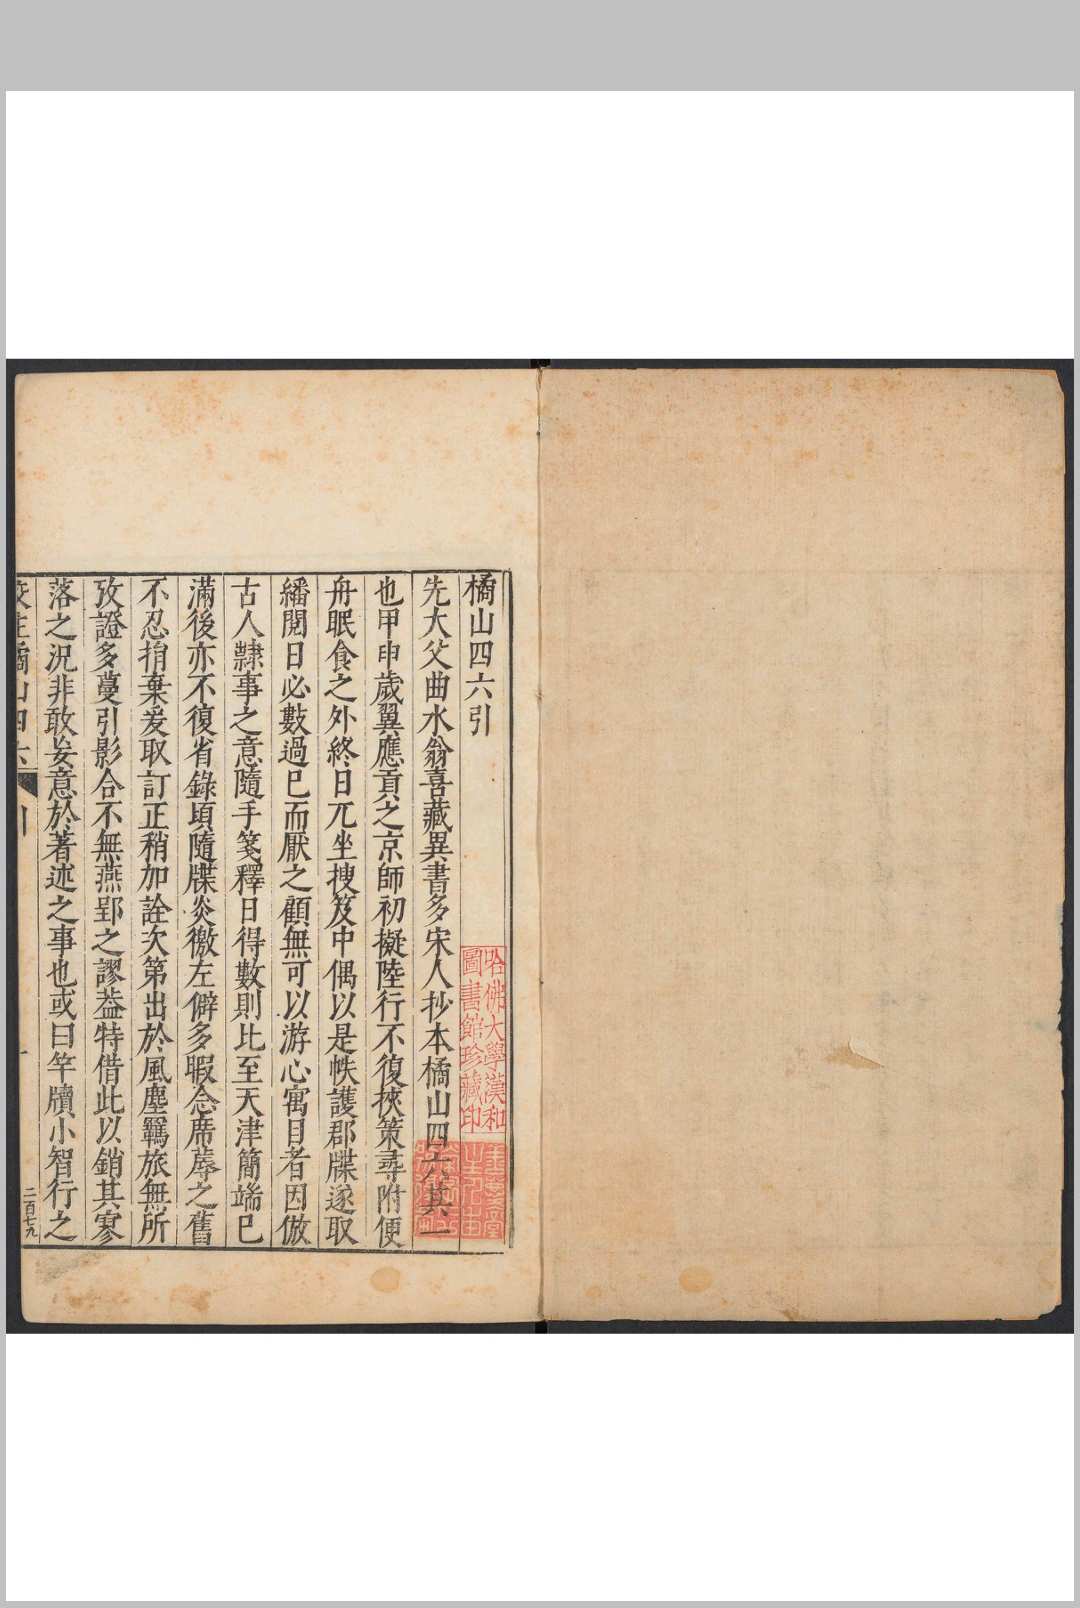 橘山四六引
先大父曲水翁喜藏異書多宋人抄本橘山四六其一
也甲申歲翼應貢之京師初擬陸行不復挾策尋附便
舟眠食之外終日兀坐搜笈中偶以是帙護郡牒遂取
繙閱日必數過已而厭之顧無可以游心寓目者因倣
古人隸事之意隨手箋釋日得數則比至天津簡端已
滿後亦不復省錄頃隨牒炎徼左僻多暇念席蓐之舊
不忍捐棄爰取訂正稍加詮次第出於風塵羈旅無所
攷證多蔓引影合不無燕郢之謬葢特借此以銷其寥
落之況非敢妄意於著述之事也或曰竿牘小智行之
橘山四六 引 一 二百七九
哈佛大學漢和
圖書館珍藏印